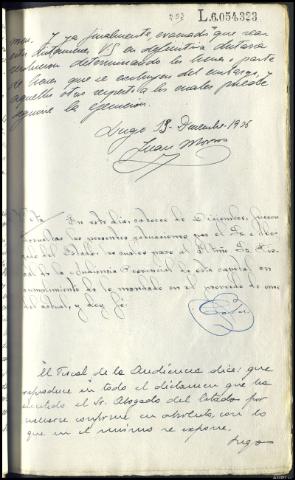 L.6.054.323
Y ya finalmente, evacuado que sean
estos dictámenes VS en definitiva dictará
resolución determinando los bienes o parte
de bienes que se excluyen del embargo, y
aquellos otros respecto a los cuales procede
seguirse la ejecución.
Lugo 13 Diciembre 1936
Juan
Nota: En este día, catorce de Diciembre, fueron
las presentes actuaciones por el Sr. Abogado
del Estado; se pasan para el Iltmo. Sr. Fiscal
de la Audiencia Provincial de esta capital, en
cumplimiento de lo mandado en el proveído de once
del actual, y doy fé.
El Fiscal de la Audiencia dice: que
reproduce en todo el dictamen que ha
emitido el Sr. Abogado del Estado por
hallarse conforme en absoluto, con lo
que en el mismo se expone.
Lugo